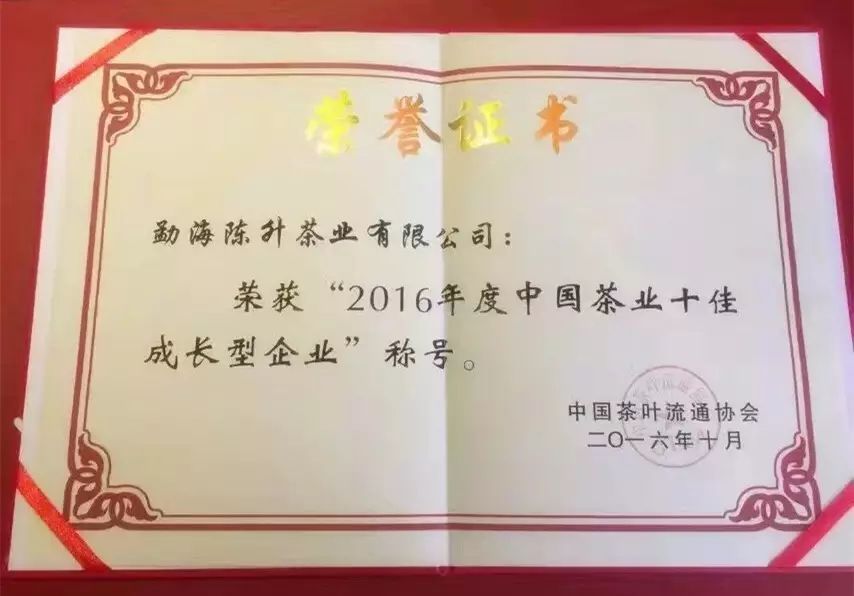 荣誉证书
勐海陈升茶业有限公司：
荣获“2016年度中国茶业十佳
成长型企业”称号。
中国茶叶流通协会
二〇一六年十月